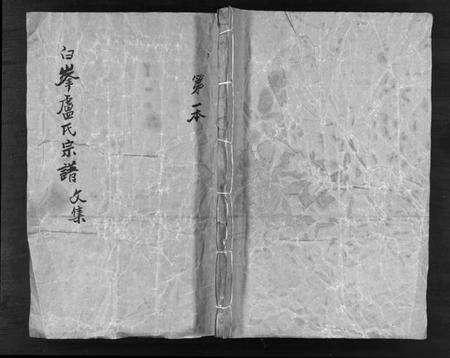 白峯盧氏宗譜 文集
第一本